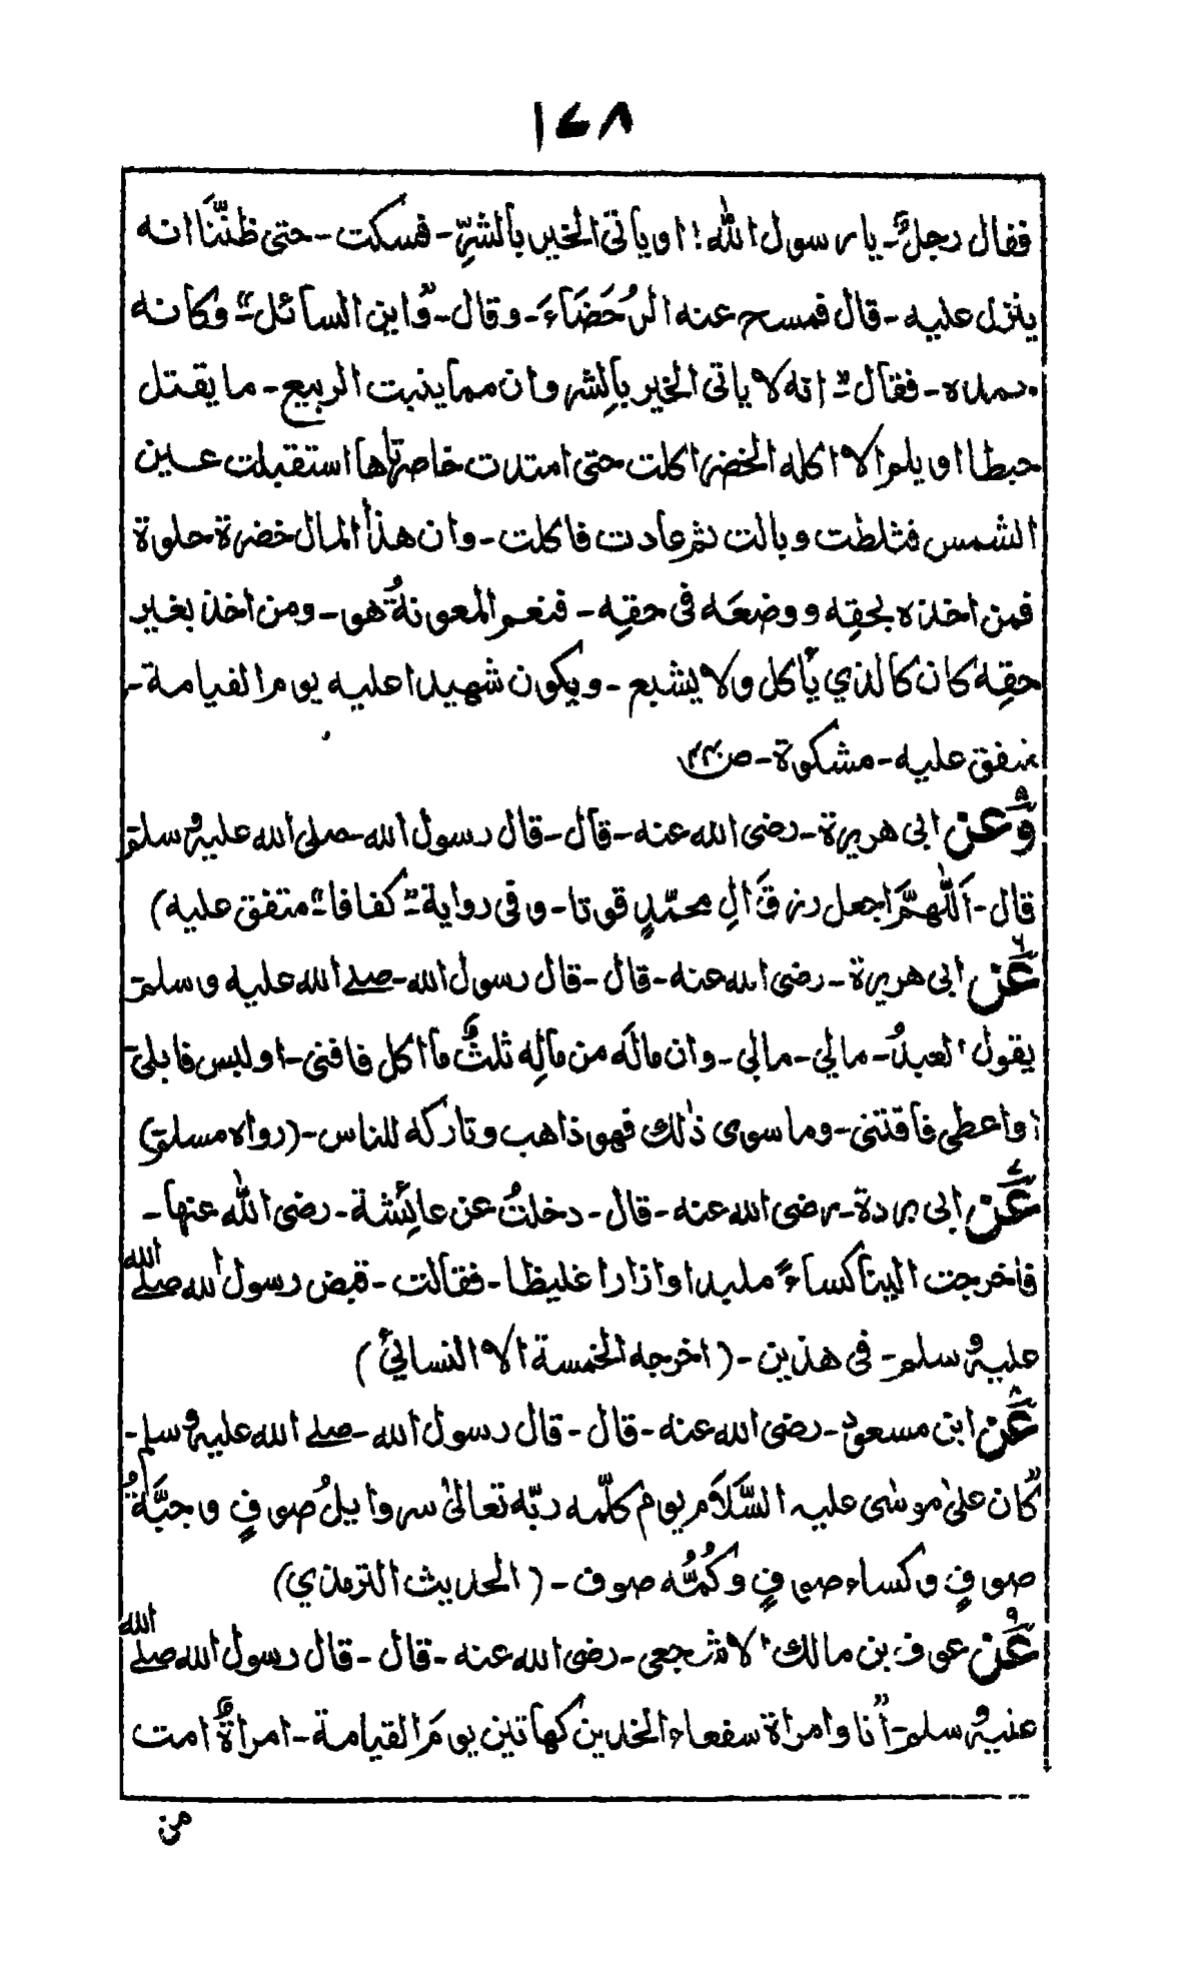 ١٧٨
فقال رجلٌ۔ يا رسول الله! او ياتى الخير بالشرِّ۔ فسكت۔ حتى ظننَّا انه
ينزل عليه۔ قال فمسح عنه الرُّحَضَاءَ۔ وقال۔ "واين السائل" وكانه
حمده۔ فقال "انه لا ياتى الخير بالشر وان مما ينبت الربيع۔ ما يقتل
حبطا او يلم الا اكله الخضر اكلت حتى امتدت خاصرتاها استقبلت عين
الشمس فثلطت وبالت ثم عادت فاكلت۔ وان هذا المال خضرة حلوة
فمن اخذه بحقه ووضعَه فى حقه۔ فنعم المعونةُ هو۔ ومن اخذ بغير
حقه كان كالذي يأكل ولا يشبع۔ ويكون شهيدا عليه يوم القيامة۔
متفق عليه۔ مشكوة۔ ص
٥ وَعن ابى هريرة۔ رضى الله عنه۔ قال۔ قال رسول الله۔ صلى الله عليه وسلم
قال۔ اَللّٰهمَّ اجعل رزقَ اٰلِ محمّدٍ قوتا۔ وفى رواية "كفافا" متفق عليه)
٦ عَن ابى هريرة۔ رضى الله عنه۔ قال۔ قال رسول الله۔ صلے الله عليه وسلم۔
يقول العبدُ۔ مالي۔ مالي۔ وان مالَه من مالِه ثلثٌ ما اكل فافنى۔ او لبس فابلى۔
او اعطى فاقتنى۔ وما سوى ذٰلك فهو ذاهب وتاركه للناس۔ (رواه مسلم)
٧ عَن ابى بردة۔ رضى الله عنه۔ قال۔ دخلتُ عن عائِشة۔ رضى الله عنها۔
فاخرجت الينا كساءً ملبدا وازارا غليظا۔ فقالت۔ قبض رسول الله صلے الله
عليه وسلم۔ فى هذين۔ (اخرجه الخمسة الا النسائىّ)
٨ عَن ابن مسعودٍ۔ رضى الله عنه۔ قال۔ قال رسول الله۔ صلے الله عليه وسلم۔
"كان علىٰ موسٰى عليه السَّلَام يوم كلّمه ربّه تعالىٰ سروايلُ صوفٍ وجبَّةُ
صوفٍ وكساء صوفٍ وكُمُّه صوف۔ (الحديث الترمذي)
٩ عَن عوف بن مالك الاشجعى۔ رضى الله عنه۔ قال۔ قال رسول الله صلے الله
عليه وسلم۔ "أنا وامراة سفعاء الخدين كهاتين يومَ القيامة۔ امراةٌ امت
من